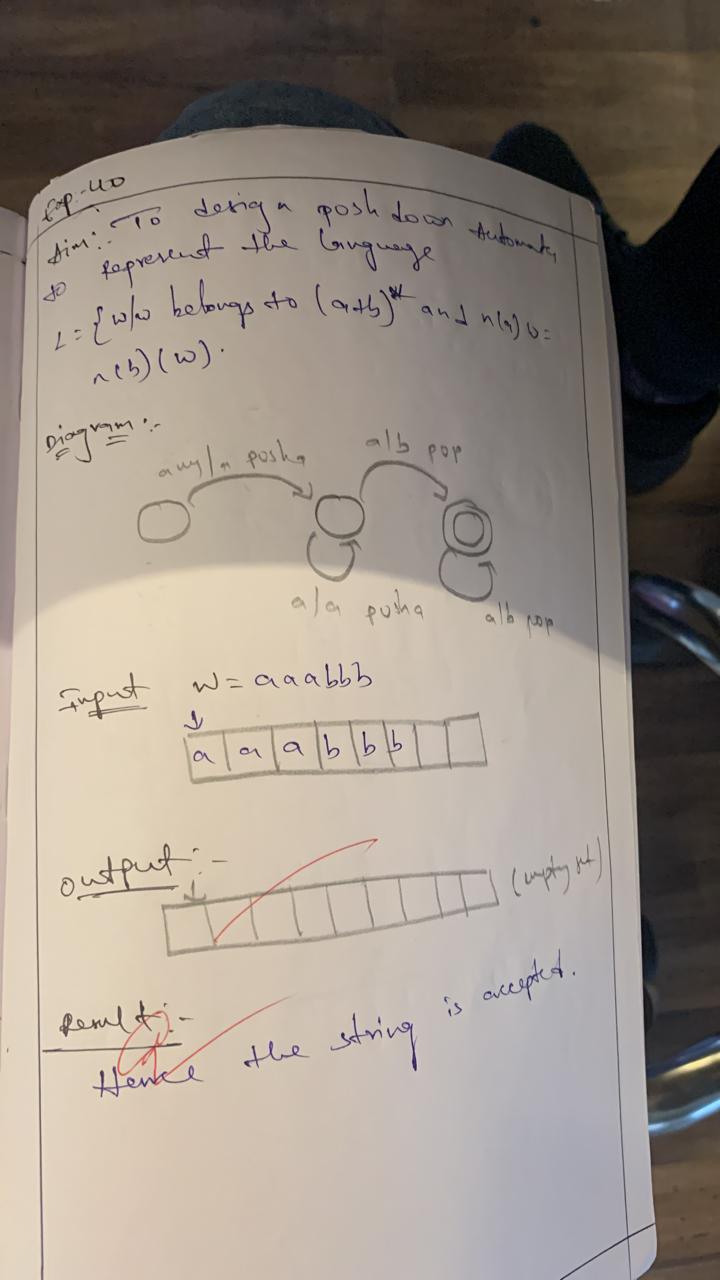 Exp:-40
Aim:- To design push down Automata
to represent the language
L = {w/w belongs to (a+b)* and n(a) w =
n(b)(w).
Diagram:-
any/a pusha
a/b pop
a/a pusha
a/b pop
Input w = aaabbb
a a a b b b
Output:-
(empty)
Result:-
Hence the string is accepted.